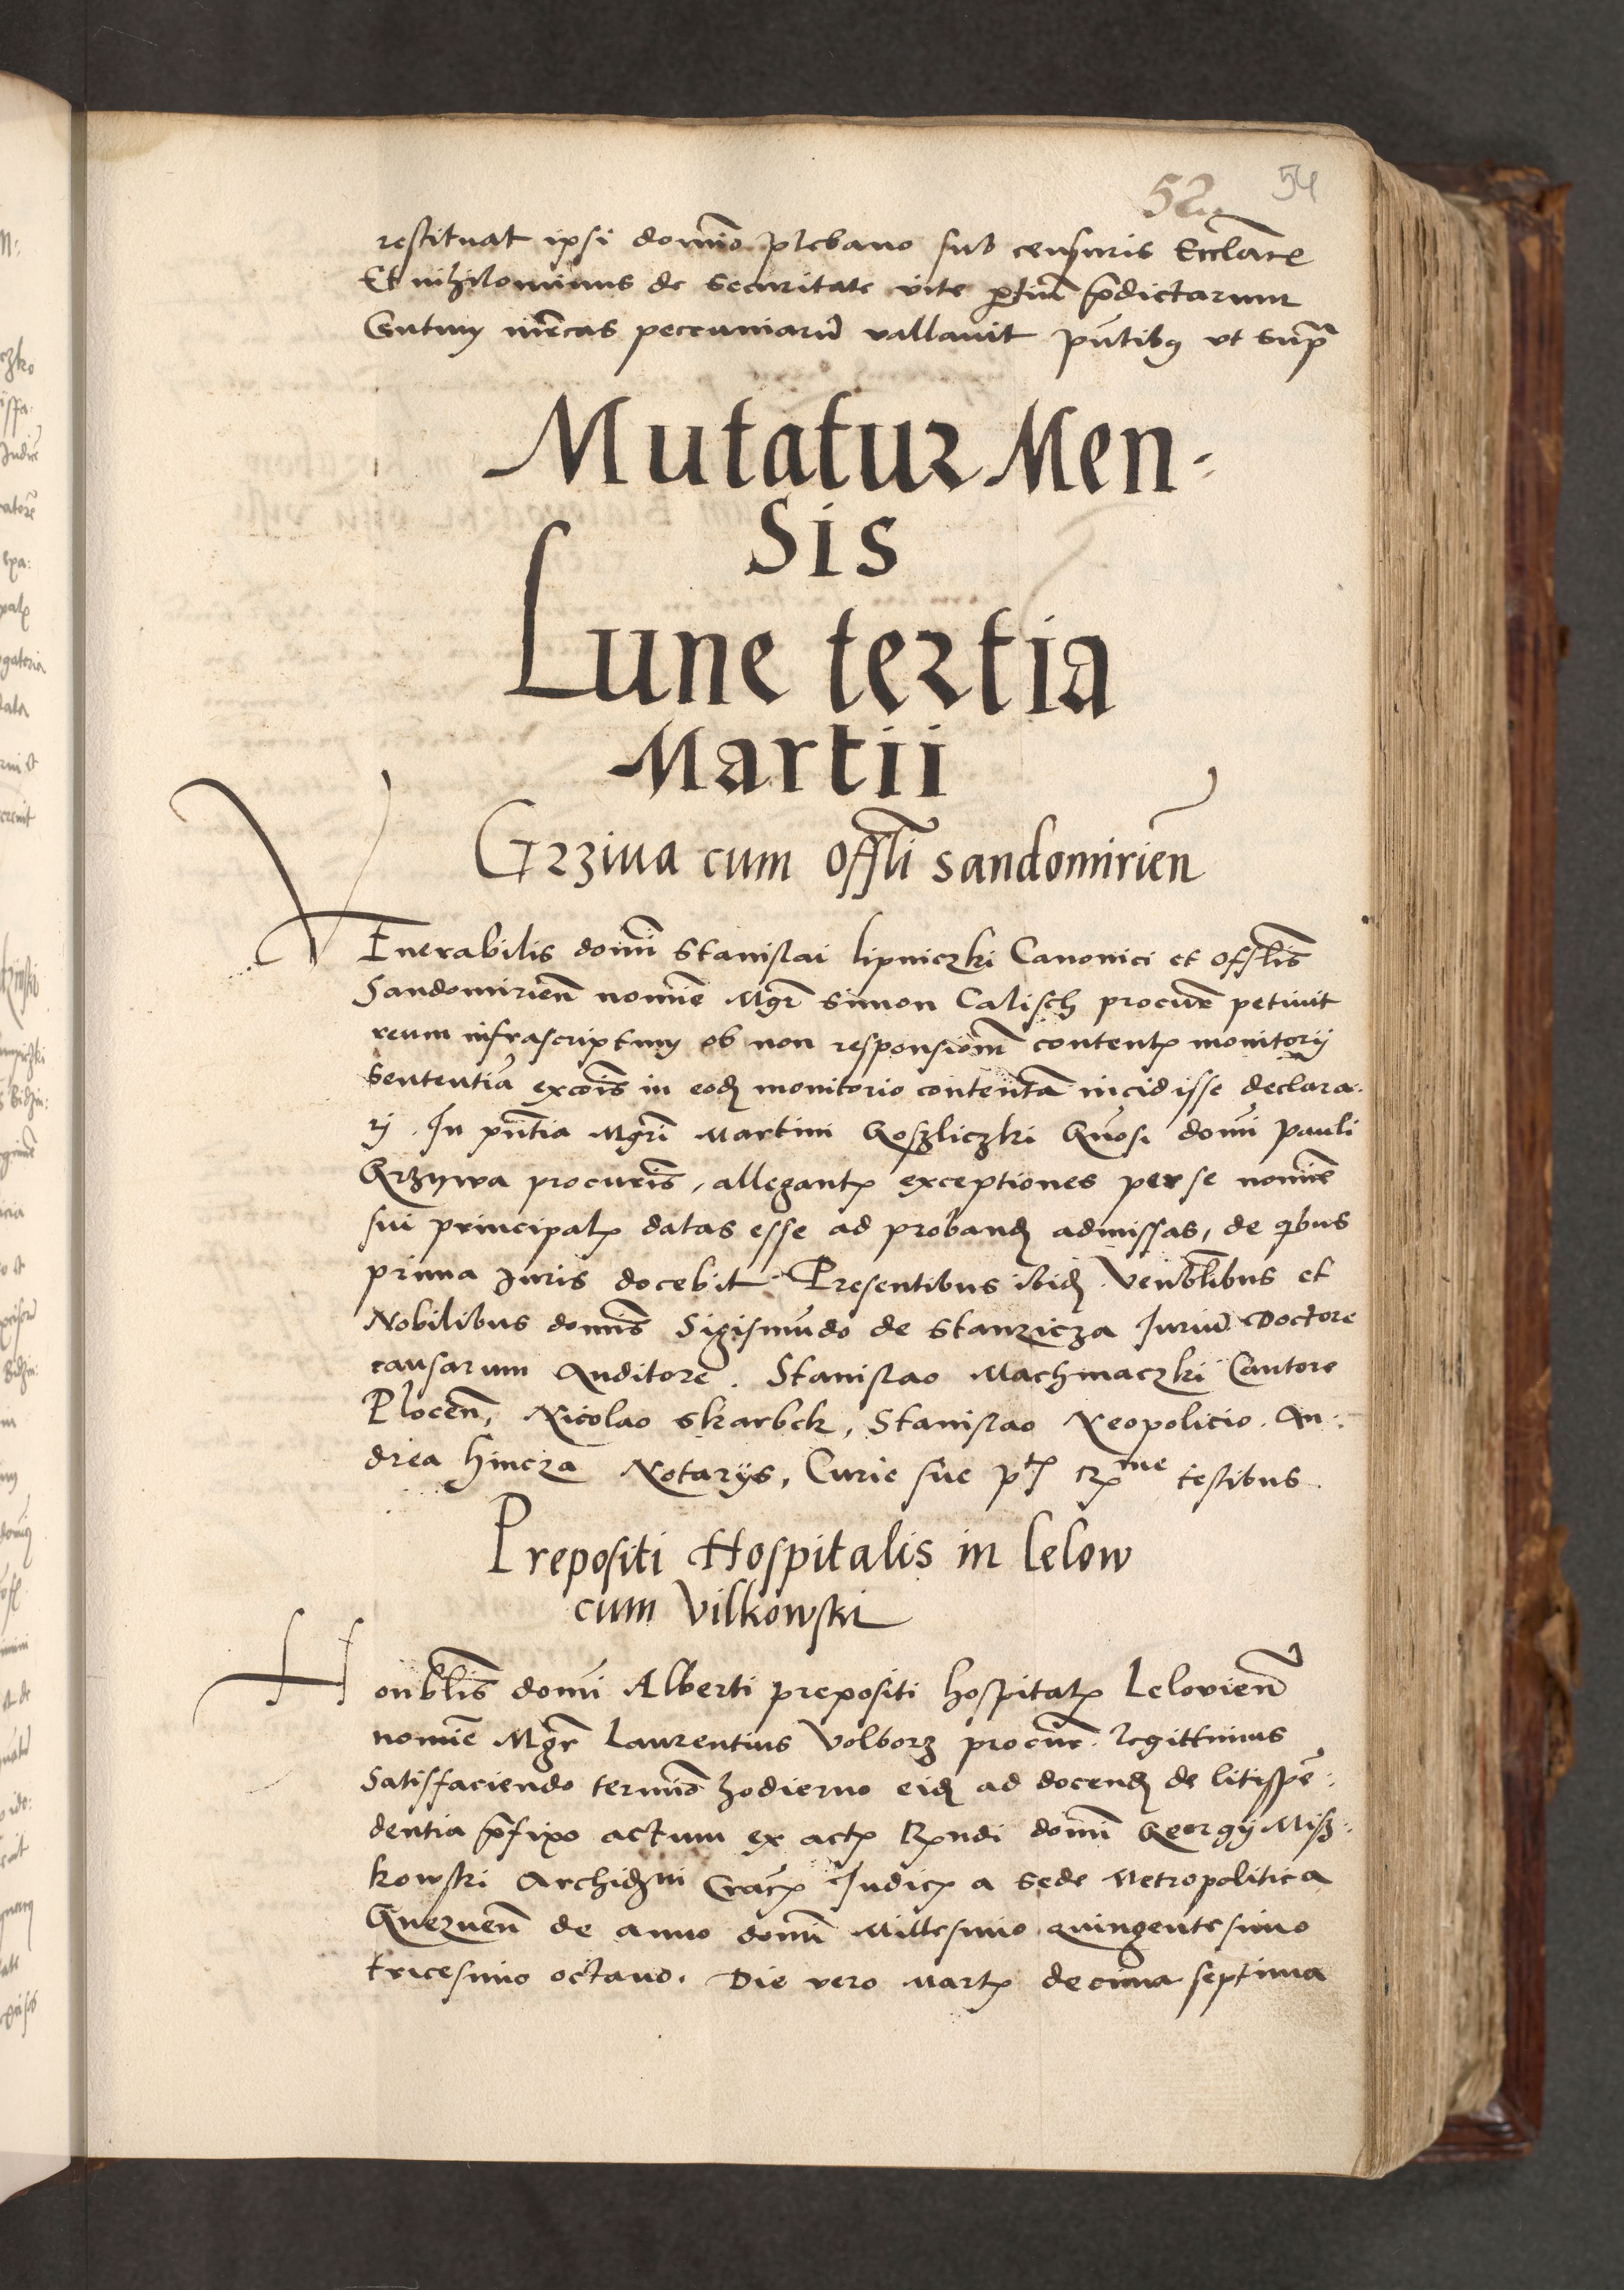 52 54
restituat ipsi domīo plebano sub censuris Eccl̄ace
Et nihilominus de securitate vite p̄tiū p̄dictarum
Centum m̄rcas peccuniarū vallauit p̄ntibꝰ vt sup̄
Mutatur Men=
sis
Lune tertia
Martii
Grziua cum offl̄i sandomirien̄
VEnerabilis domī Stanislai lipniczki Canonici et Offl̄is
Sandomirien̄ nomīe Mgr̄ Simon Calisch procur̄ petiuit
reum infrascriptum ob non responsiom̄ contentꝝ monitorij
Sententiā excōis in eodꝫ monitorio contentā incidisse declara:
ri . In p̄ntia Mgr̄i Martini Goszliczki Gn̄osi domī pauli
Grzywa procur̄is, allegantꝝ exceptiones per se nomīe
sui principalꝝ datas esse ad probandꝫ admissas, de qbus
prima Juris docebit Presentibus ibidꝫ Venbl̄ibus et
Nobilibus domīs Sigismūdo de Stanzicza Juriū Doctore
causarum Auditore . Stanislao Machmaczki Cantore
Plocen̄, Nicolao Skarbek, Stanislao Neopolicio . An:
drea hincza Notarijs, Curie sue ptꝭ Rme testibus
Prepositi Hospitalis in lelow
cum Vilkowski
Honbl̄is domī Alberti prepositi hospitalꝝ Lelouien̄
nomīe Mgr̄ Laurentius Volborz procur̄ . legittimus
Satisfaciendo termīo hodierno eidꝫ ad docendꝫ de litispē:
dentia p̄fixo actum ex actꝝ Rndi domī Georgij Misz:
kowski Archidni Cracꝝ Judicꝝ a Sede Metropolitica
Gneznen̄ de anno domī Millesimo quingentesimo
tricesimo octauo. Die vero Martꝝ decima septima